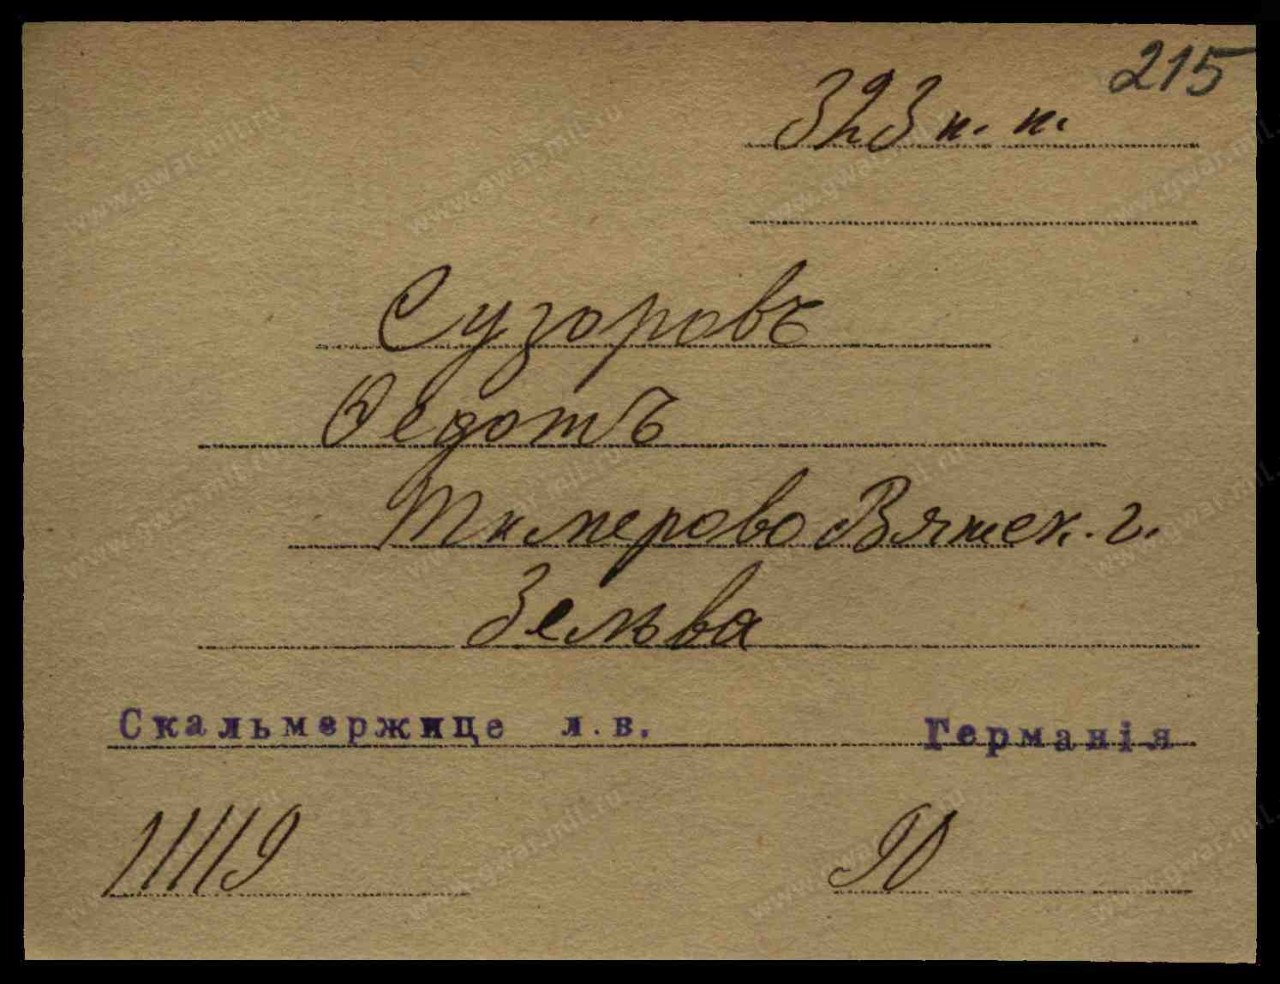 215
323 п. п.
Сузоровъ
Ѳедотъ
Тимерово Вятск. г.
Зельва
Скальмержице л.в. Германія
11119 90